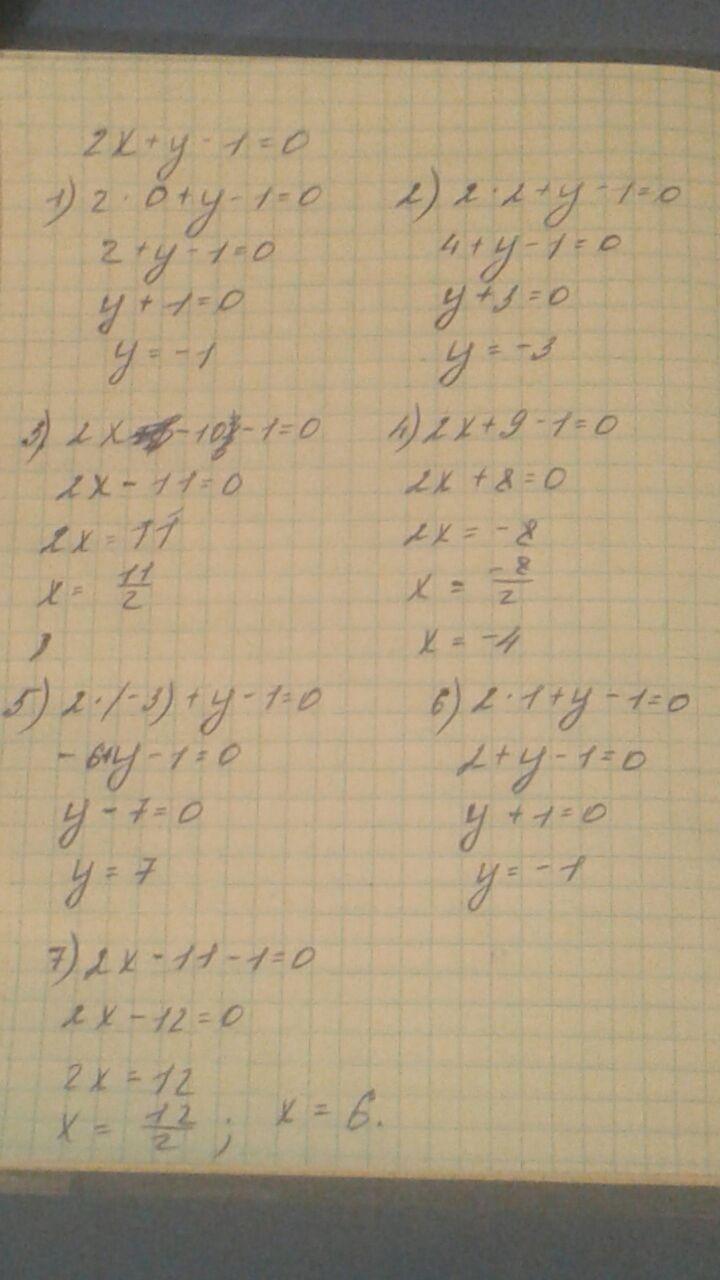 2x+y-1=0
1) 2·0+y-1=0
2+y-1=0
y+1=0
y=-1
2) 2·2+y-1=0
4+y-1=0
y+3=0
y=-3
3) 2x-10-1=0
2x-11=0
2x=11
x=11/2
4) 2x+9-1=0
2x+8=0
2x=-8
x=-8/2
x=-4
5) 2·(-3)+y-1=0
-6+y-1=0
y-7=0
y=7
6) 2·1+y-1=0
2+y-1=0
y+1=0
y=-1
7) 2x-11-1=0
2x-12=0
2x=12
x=12/2; x=6.